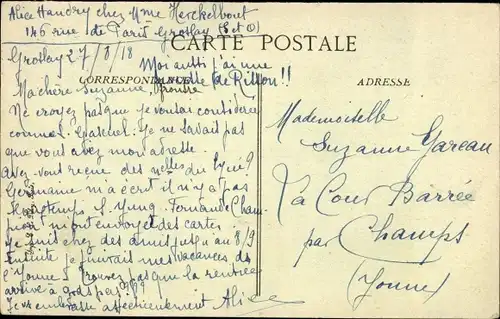 Alice Haudry chez Mme Herckelbout
146 rue de Paris Groslay (S et O)
CARTE POSTALE
Groslay 27/8/18
Moi aussi j'ai une
CORRESPONDANCE
de Rillon!!
ADRESSE
Ma chère Suzanne,
Ne croyez pas que je voulai
comme Je ne savais pas
que vous aviez mon adresse.
Avez-vous reçue des nelles du lycée?
Germaine m'a écrit il n'y a pas
longtemps. S. Jung. Fernande Cham-
pion m'ont envoyé des cartes
Je suis chez des amis jusqu'au 8/9
Ensuite je finirai mes vacances ds
l'Yonne. Trouvez pas que la rentrée
arrive à gds pas???
Je vs embrasse affectueusement Alice
Mademoiselle
Suzanne Gareau
La Cour Barrée
par Champs
(Yonne)